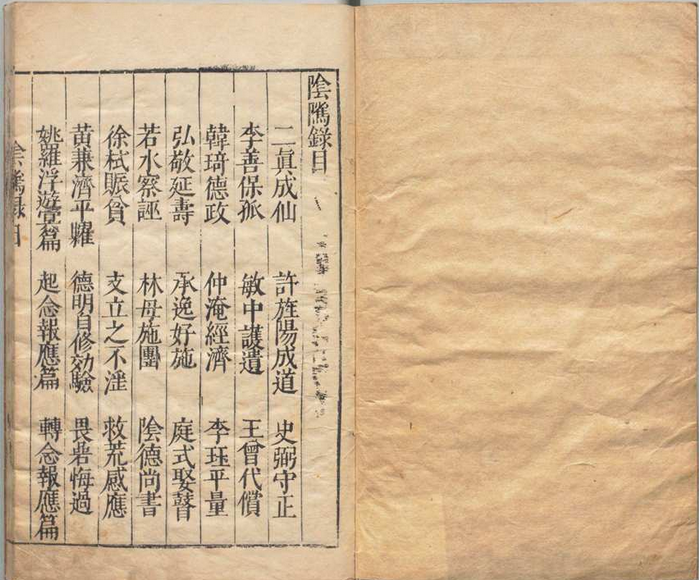 陰隲錄目
二眞成仙 許旌陽成道 史弼守正
李善保孤 敏中護遺 王曾代償
韓琦德政 仲淹經濟 李珏平量
弘敬延壽 承逸好施 庭式娶瞽
若水察誣 林母施團 陰德尚書
徐栻賑貧 支立之不淫 救荒感應
黄兼濟平糶 德明自修効驗 畏鼌悔過
姚羅浮遊冥篇 起念報應篇 轉念報應篇
陰隲錄目